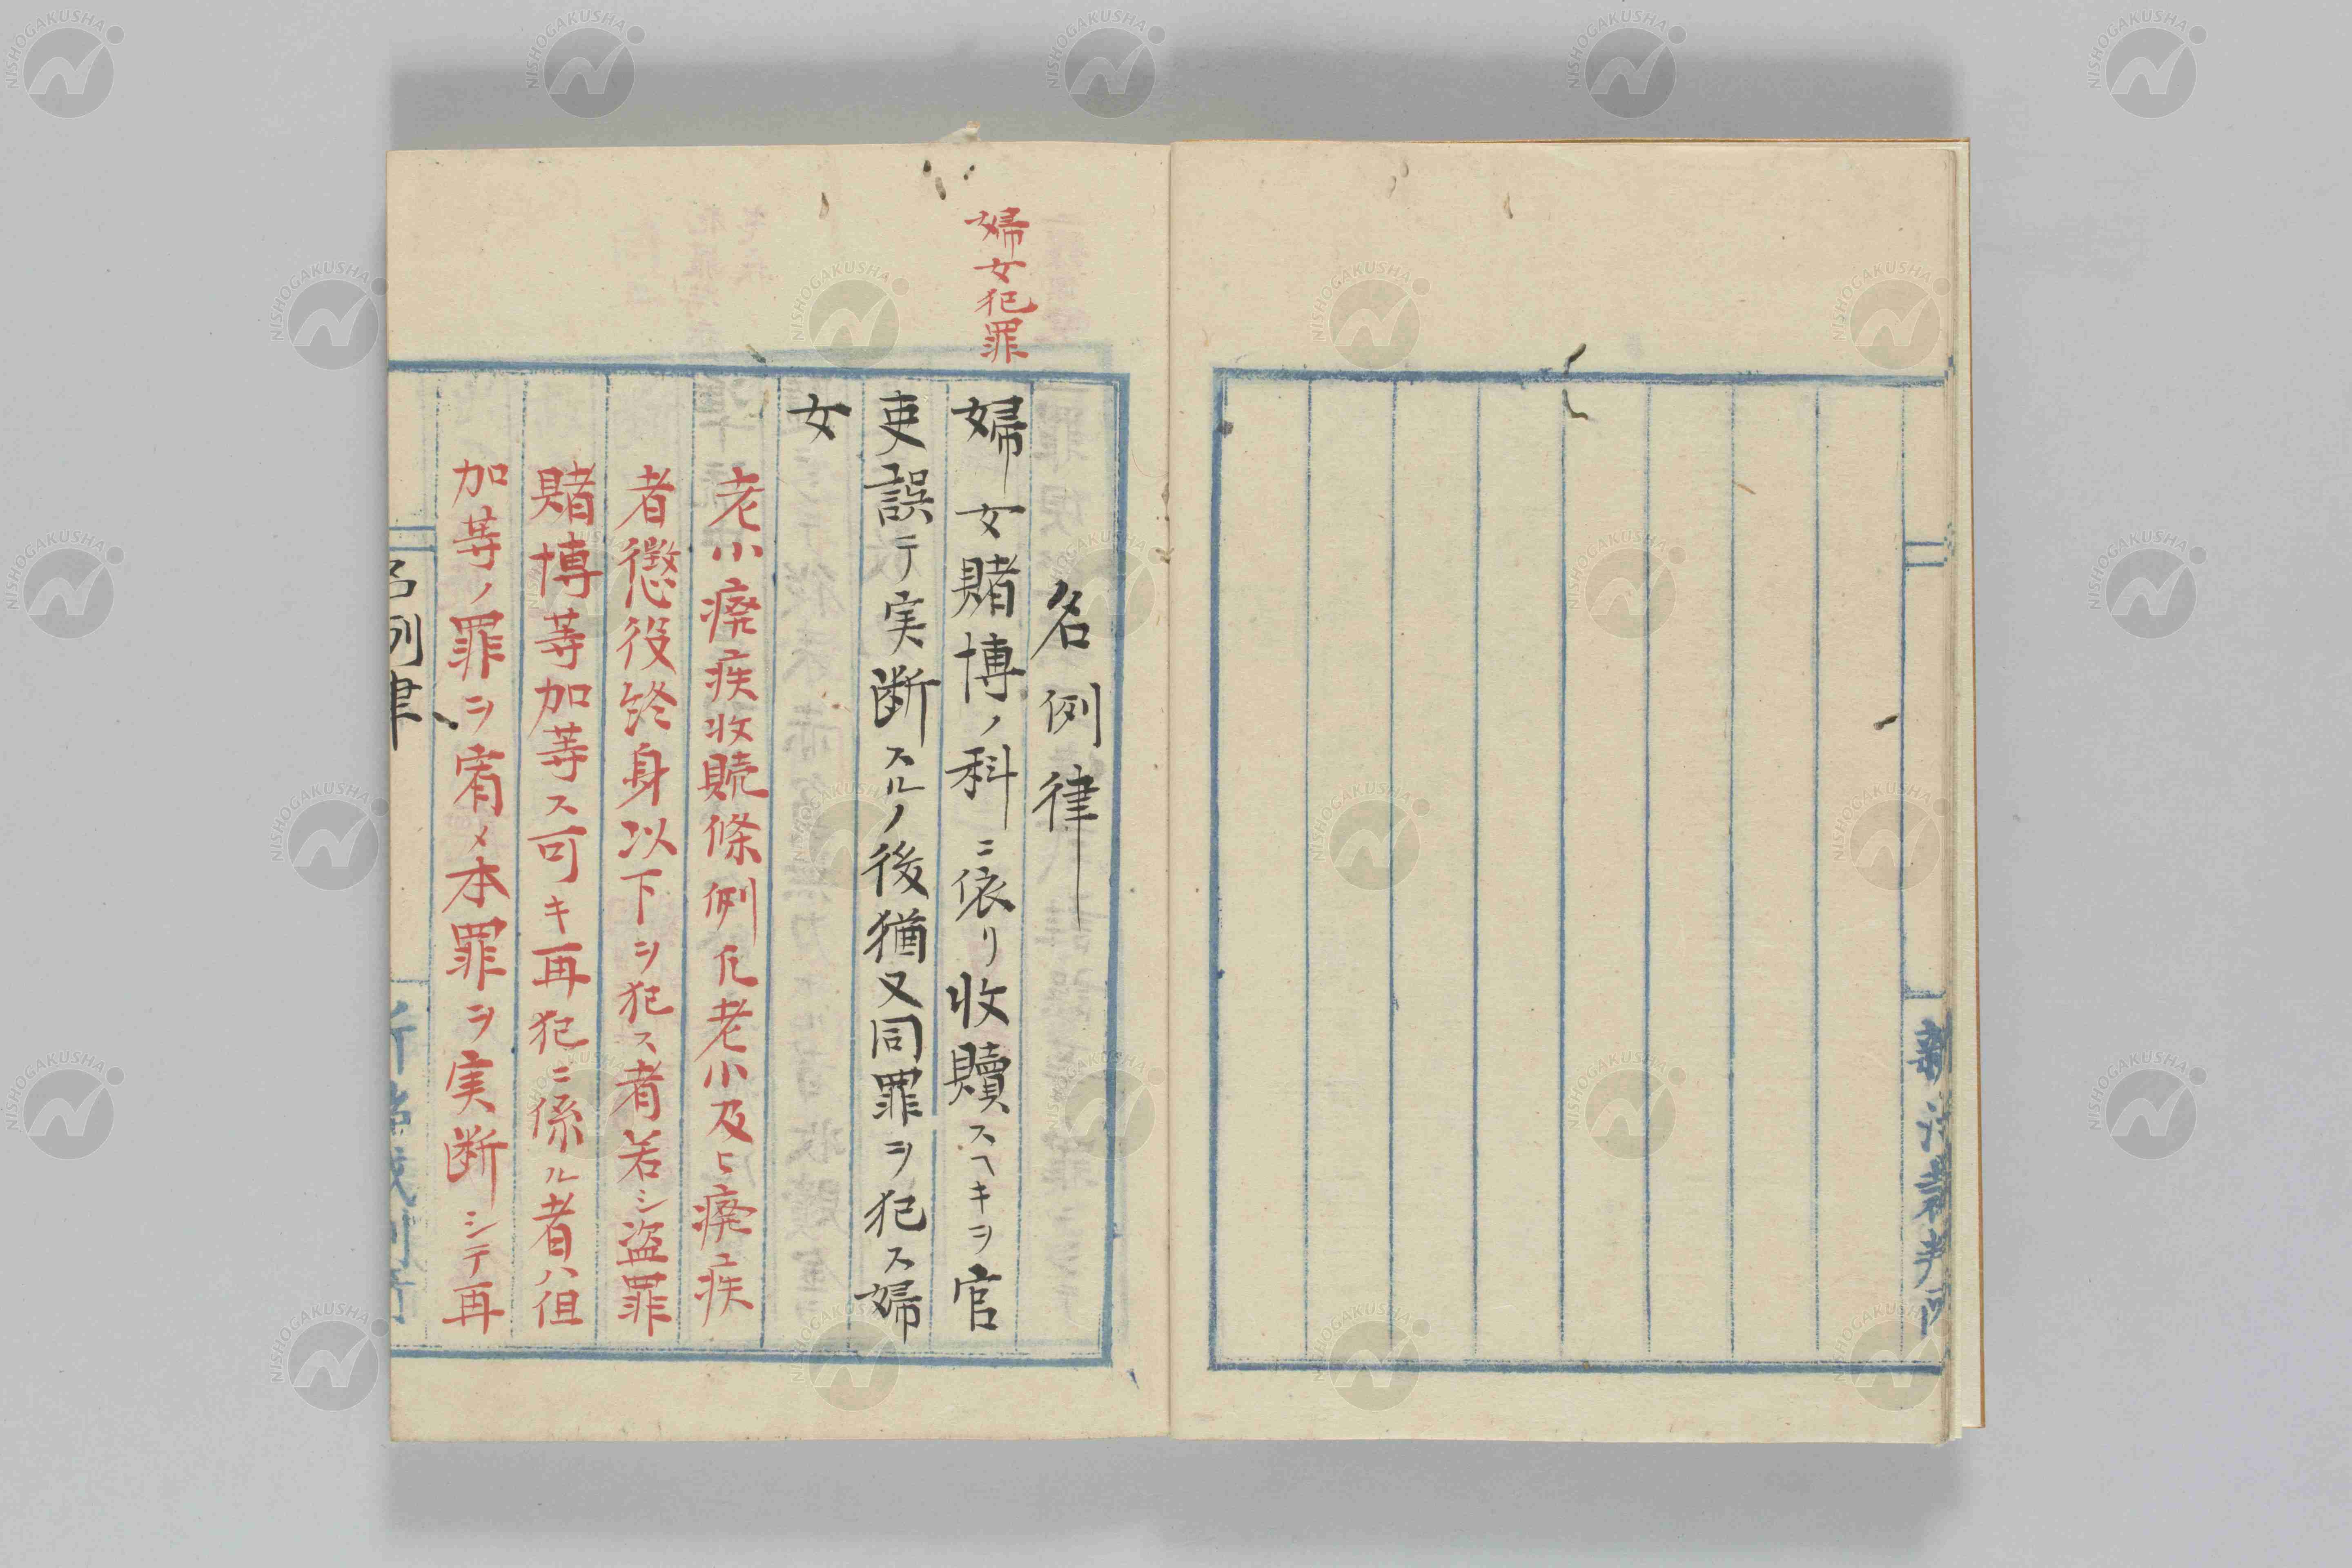 婦女犯罪
名例律
婦女賭博ノ科ニ依リ收贖スヘキヲ官
吏誤テ実断スルノ後猶又同罪ヲ犯ス婦
女
老小癈疾收贖條例凡老小及ヒ癈疾
者懲役終身以下ヲ犯ス者若シ盗罪
賭博等加等ス可キ再犯ニ係ル者ハ但
加等ノ罪ヲ宥メ本罪ヲ実断シテ再
名例律
NISHOGAKUSHA